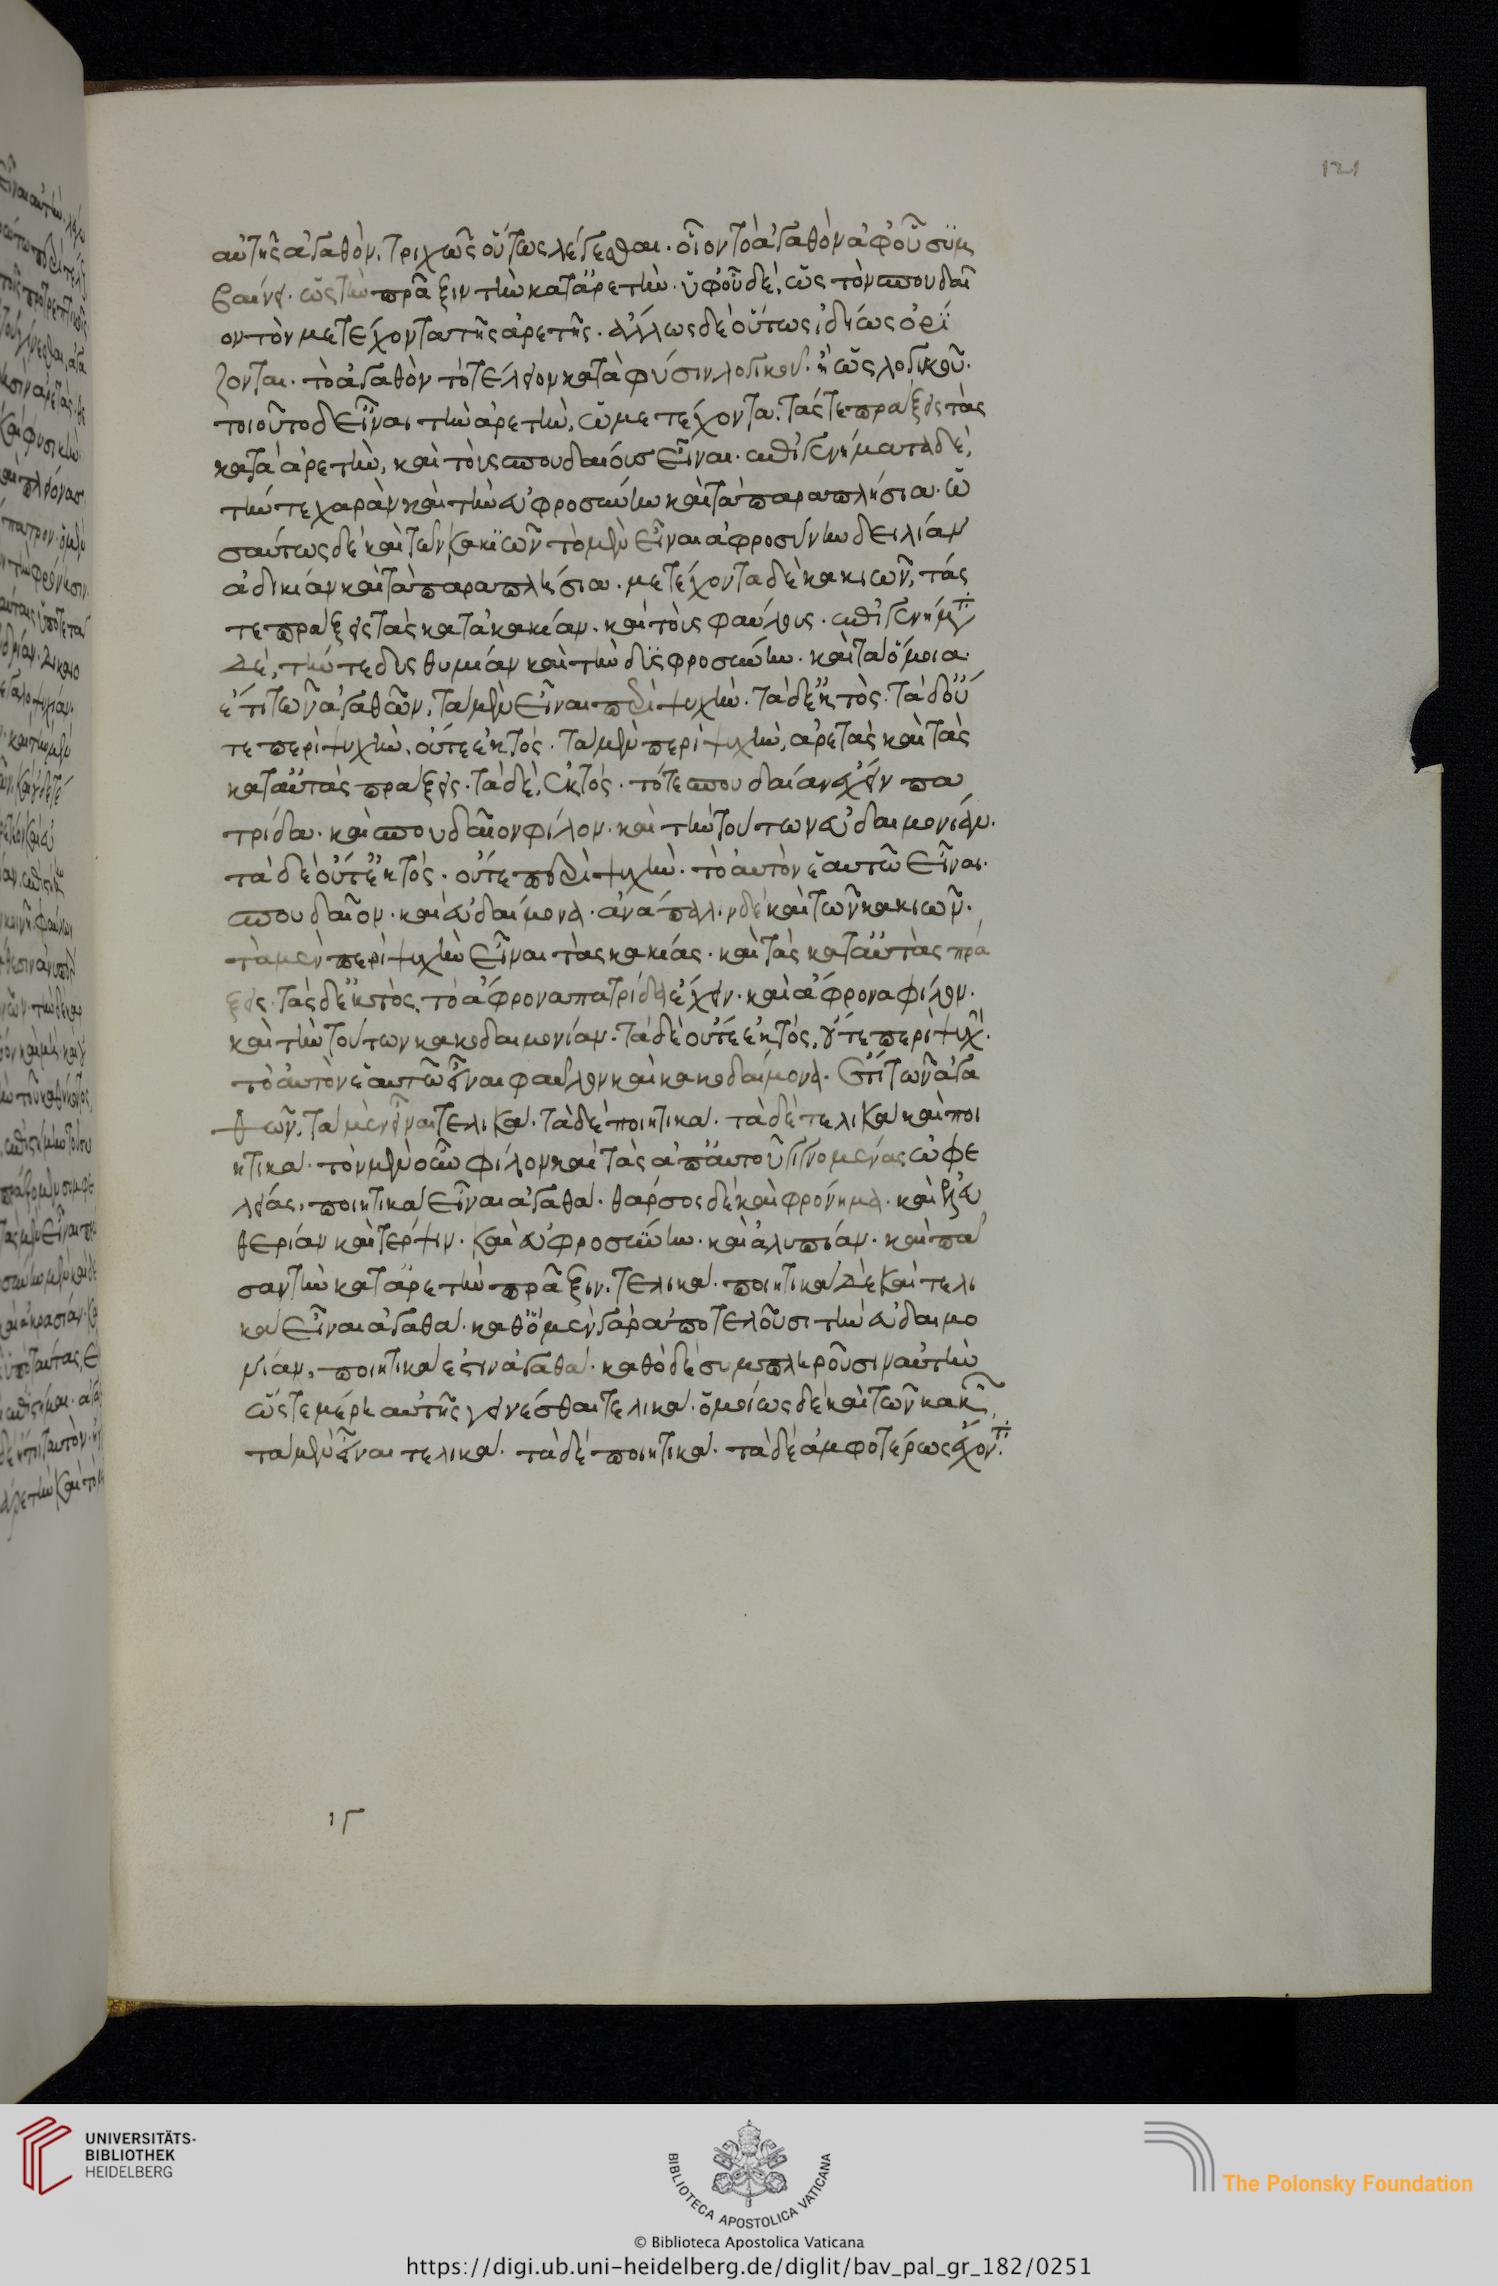 121
αὐτῆς ἀγαθὸν, τριχῶς οὕτως λέγεσθαι. οἷον τὸ ἀγαθὸν ἀφ' οὗ συμ
βαίνει. ὡς τὴν πρᾶξιν τὴν κατ' ἀρετὴν. ὑφ' οὗ δέ, ὡς τὸν σπουδαῖ
ον τὸν μετέχοντα τῆς ἀρετῆς. ἄλλως δὲ οὕτως ἰδίως ὁρί
ζονται. τὸ ἀγαθὸν τὸ τέλειον κατὰ φύσιν λογικοῦ. ἢ ὡς λογικοῦ.
τοιοῦτο δ' εἶναι τὴν ἀρετὴν, ὡς μετέχοντα. τάς τε πράξεις τὰς
κατὰ ἀρετὴν, καὶ τοὺς σπουδαίους εἶναι. ἐπιγενήματα δέ,
τήν τε χαρὰν καὶ τὴν εὐφροσύνην καὶ τὰ παραπλήσια. ὡ
σαύτως δὲ καὶ τῶν κακιῶν τὸ μὲν εἶναι ἀφροσύνην δειλίαν
ἀδικίαν καὶ τὰ παραπλήσια. μετέχοντα δὲ κακιῶν, τάς
τε πράξεις τὰς κατὰ κακίαν. καὶ τοὺς φαύλους. ἐπιγενήματα
δέ, τήν τε δυσθυμίαν καὶ τὴν δυσφροσύνην. καὶ τὰ ὅμοια.
ἔτι τῶν ἀγαθῶν, τὰ μὲν εἶναι περὶ ψυχὴν. τὰ δ' ἐκτὸς. τὰ δ' οὔ
τε περὶ ψυχὴν, οὔτε ἐκτός. τὰ μὲν περὶ ψυχὴν, ἀρετὰς καὶ τὰς
κατ' αὐτὰς πράξεις. τὰ δὲ, ἐκτός. τό τε σπουδαίαν ἔχειν πα
τρίδα. καὶ σπουδαῖον φίλον. καὶ τὴν τούτων εὐδαιμονίαν.
τὰ δὲ οὔτ' ἐκτός. οὔτε περὶ ψυχὴν. τὸ αὐτὸν ἑαυτῶ εἶναι.
σπουδαῖον. καὶ εὐδαίμονα. ἀνάπαλιν δὲ καὶ τῶν κακιῶν.
τὰ μὲν περὶ ψυχὴν εἶναι τὰς κακίας. καὶ τὰς κατ' αὐτὰς πρά
ξεις. τὰς δ' ἐκτὸς, τὸ ἄφρονα πατρίδα ἔχειν. καὶ ἄφρονα φίλον.
καὶ τὴν τούτων κακοδαιμονίαν. τὰ δὲ οὔτε ἐκτός, οὔτε περὶ ψυχ.
τὸ αὐτὸν ἑαυτῶ εἶναι φαῦλον καὶ κακοδαίμονα. ἔτι τῶν ἀγα
θῶν, τὰ μὲν εἶναι τελικα. τὰ δὲ ποιητικα. τὰ δὲ τελικα καὶ ποι
ητικα. τὸν μὲν οὖν φίλον καὶ τὰς ἀπ' αὐτοῦ γινομένας ὠφε
λείας, ποιητικα εἶναι ἀγαθα. θάρσος δὲ καὶ φρόνημα. καὶ ἐλευ
θερίαν καὶ τέρψιν. καὶ εὐφροσύνην. καὶ ἀλυπίαν. καὶ πᾶ
σαν τὴν κατ' ἀρετὴν πρᾶξιν. τελικα. ποιητικα δὲ καὶ τελι
κα εἶναι ἀγαθα. καθ' ὃ μὲν γὰρ ἀποτελοῦσι τὴν εὐδαιμο
νίαν, ποιητικα ἐστιν ἀγαθα. καθὸ δὲ συμπληροῦσιν αὐτὴν
ὥστε μέρη αὐτῆς γενέσθαι τελικα. ὁμοίως δὲ καὶ τῶν κακῶν
τὰ μὲν εἶναι τελικα. τὰ δὲ ποιητικα. τὰ δὲ ἀμφοτέρως ἔχοντα.
UNIVERSITÄTS-
BIBLIOTHEK
HEIDELBERG
BIBLIOTECA APOSTOLICA VATICANA
© Biblioteca Apostolica Vaticana
The Polonsky Foundation
https://digi.ub.uni-heidelberg.de/diglit/bav_pal_gr_182/0251